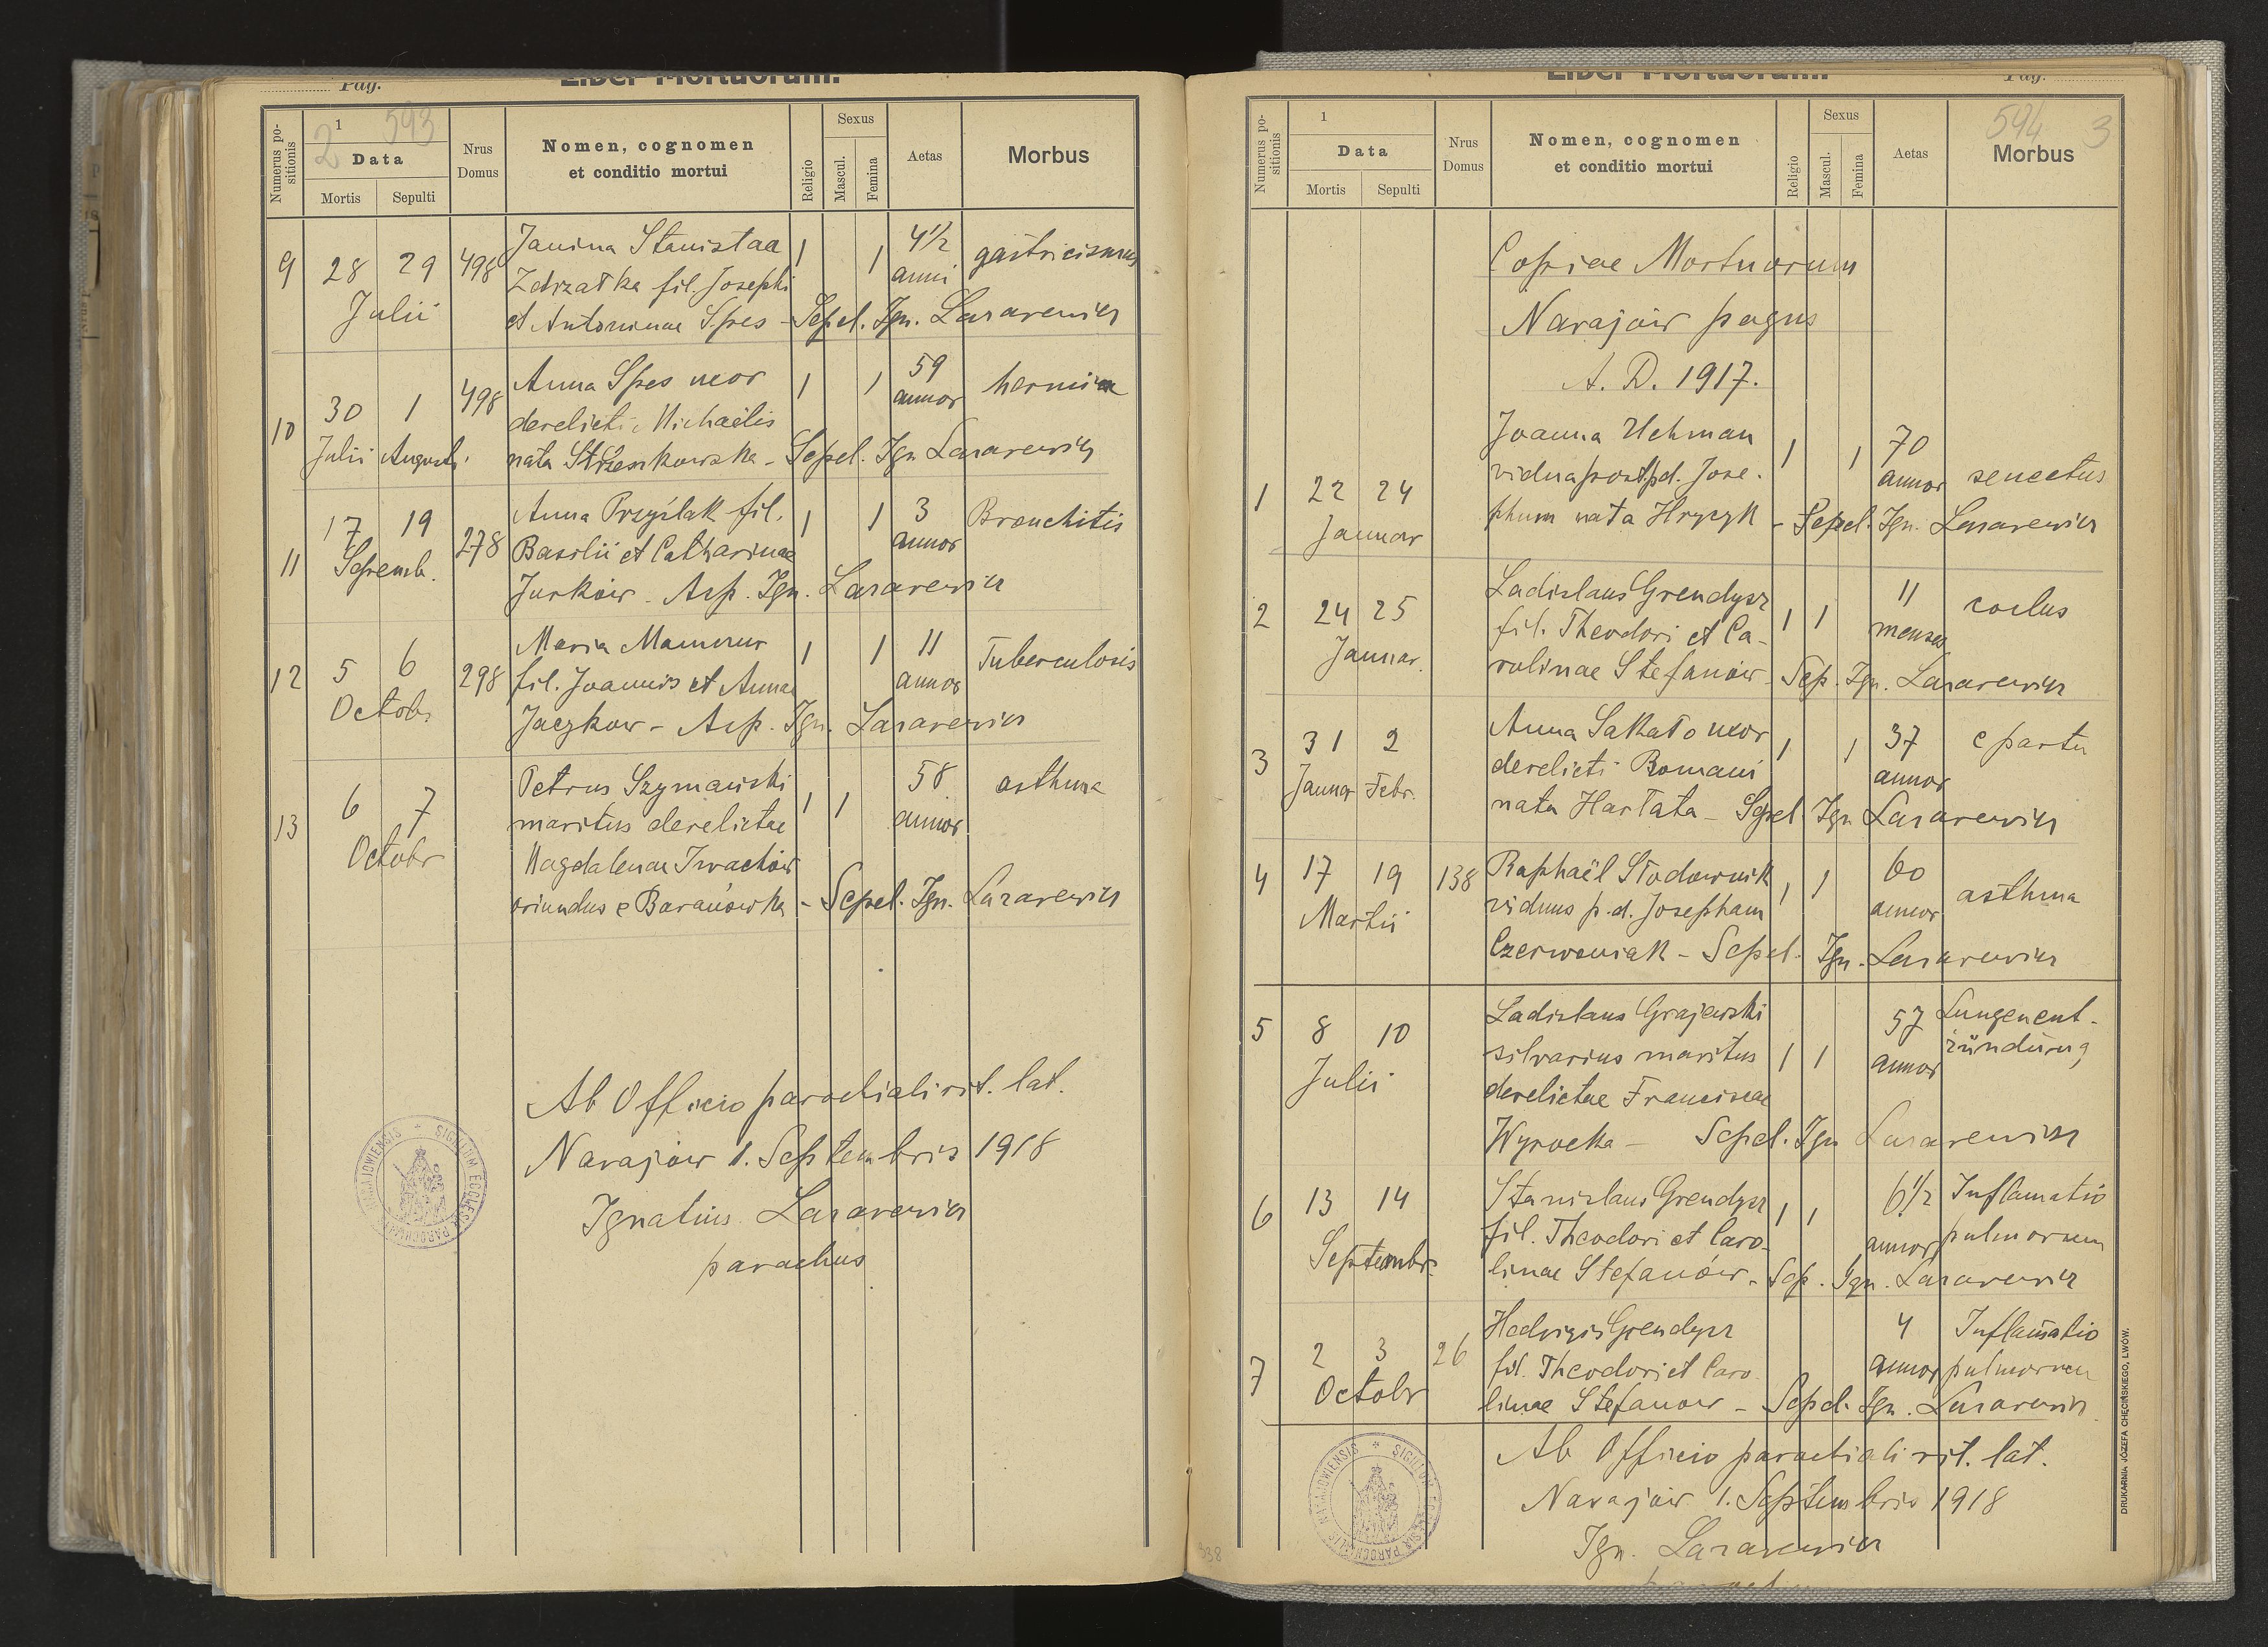 Pag.
Liber Mortuorum.
593
2
Numerus positionis
1
Data
Mortis
Sepulti
Nrus Domus
Nomen, cognomen
et conditio mortui
Religio
Sexus
Mascul.
Femina
Aetas
Morbus
9 28 29 498 Janina Stanisłaa 1 1 4 1/2 gastricismus
Zdrzałka fil. Josephi anni
Julii et Antoninae Spes - Sepel. Ign. Lazarewicz
10 30 1 498 Anna Spes uxor 1 1 59 herniae
derelicti Michaëlis annor
Julii Augusti. nata Strzeszkowska - Sepel. Ign Lazarewicz
11 17 19 278 Anna Przyślak fil. 1 1 3 Bronchitis
Septemb. Basilii et Catharinae annor
Jurków - Asp. Ign. Lazarewicz
12 5 6 298 Maria Mamczur 1 1 11 Tuberculosis
fil. Joannis et Annae annor
Octobr Jaczkow - Asp. Ign. Lazarewicz
13 6 7 Petrus Szymański 1 1 58 asthma
maritus derelictae annor
Octobr Magdalenae Iwachów
oriundus e Baranówka - Sepel. Ign. Lazarewicz
Ab Officio parochiali rit. lat.
Narajow 1. Septembris 1918
Ignatius Lazarewicz
parochus
SIGILLUM ECCLESIAE PAROCHIALIS NARAJOWIENSIS
Liber Mortuorum.
Pag.
594
3
Numerus positionis
1
Data
Mortis
Sepulti
Nrus Domus
Nomen, cognomen
et conditio mortui
Religio
Sexus
Mascul.
Femina
Aetas
Morbus
Copiae Mortuorum
Narajów pagus
A. D. 1917.
1 22 24 Joanna Uchman 1 1 70 senectus
vidua post p.d. Jose- annor
Januar phum nata Hryzyk - Sepel. Ign. Lazarewicz
2 24 25 Ladislaus Grendysz 1 1 11 coclus
fil. Theodori et Ca- menses
Januar. rolinae Stefanów - Sep. Ign. Lazarewicz
3 31 2 Anna Sakało uxor 1 1 37 e partu
derelicti Romani annor
Januar Febr. nata Harłata - Sepel Ign Lazarewicz
4 17 19 138 Raphaël Słodownik 1 1 60 asthma
Martii viduus p.d. Josepham annor
Czerwoniak - Sepel. Ign. Lazarewicz
5 8 10 Ladislaus Grajewski 1 1 57 Lungenent-
silvarius maritus annor zündung
Julii derelictae Franciscae
Wyrocka - Sepel. Ign Lazarewicz
6 13 14 Stanislaus Grendysz 1 1 6 1/2 Inflamatio
fil. Theodori et Caro- annor pulmorum
Septembr. linae Stefanów - Sep. Ign. Lazarewicz
7 2 3 26 Hedvigis Grendysz 4 Inflamatio
fil. Theodori et Caro annor pulmorum
Octobr linae Stefanow - Sepel. Ign. Lazarewicz
Ab Officio parochiali rit. lat.
Narajów 1. Septembris 1918
Ign. Lazarewicz
SIGILLUM ECCLESIAE PAROCHIALIS NARAJOWIENSIS
DRUKARNIA JÓZEFA CHĘCIŃSKIEGO, LWÓW.
338